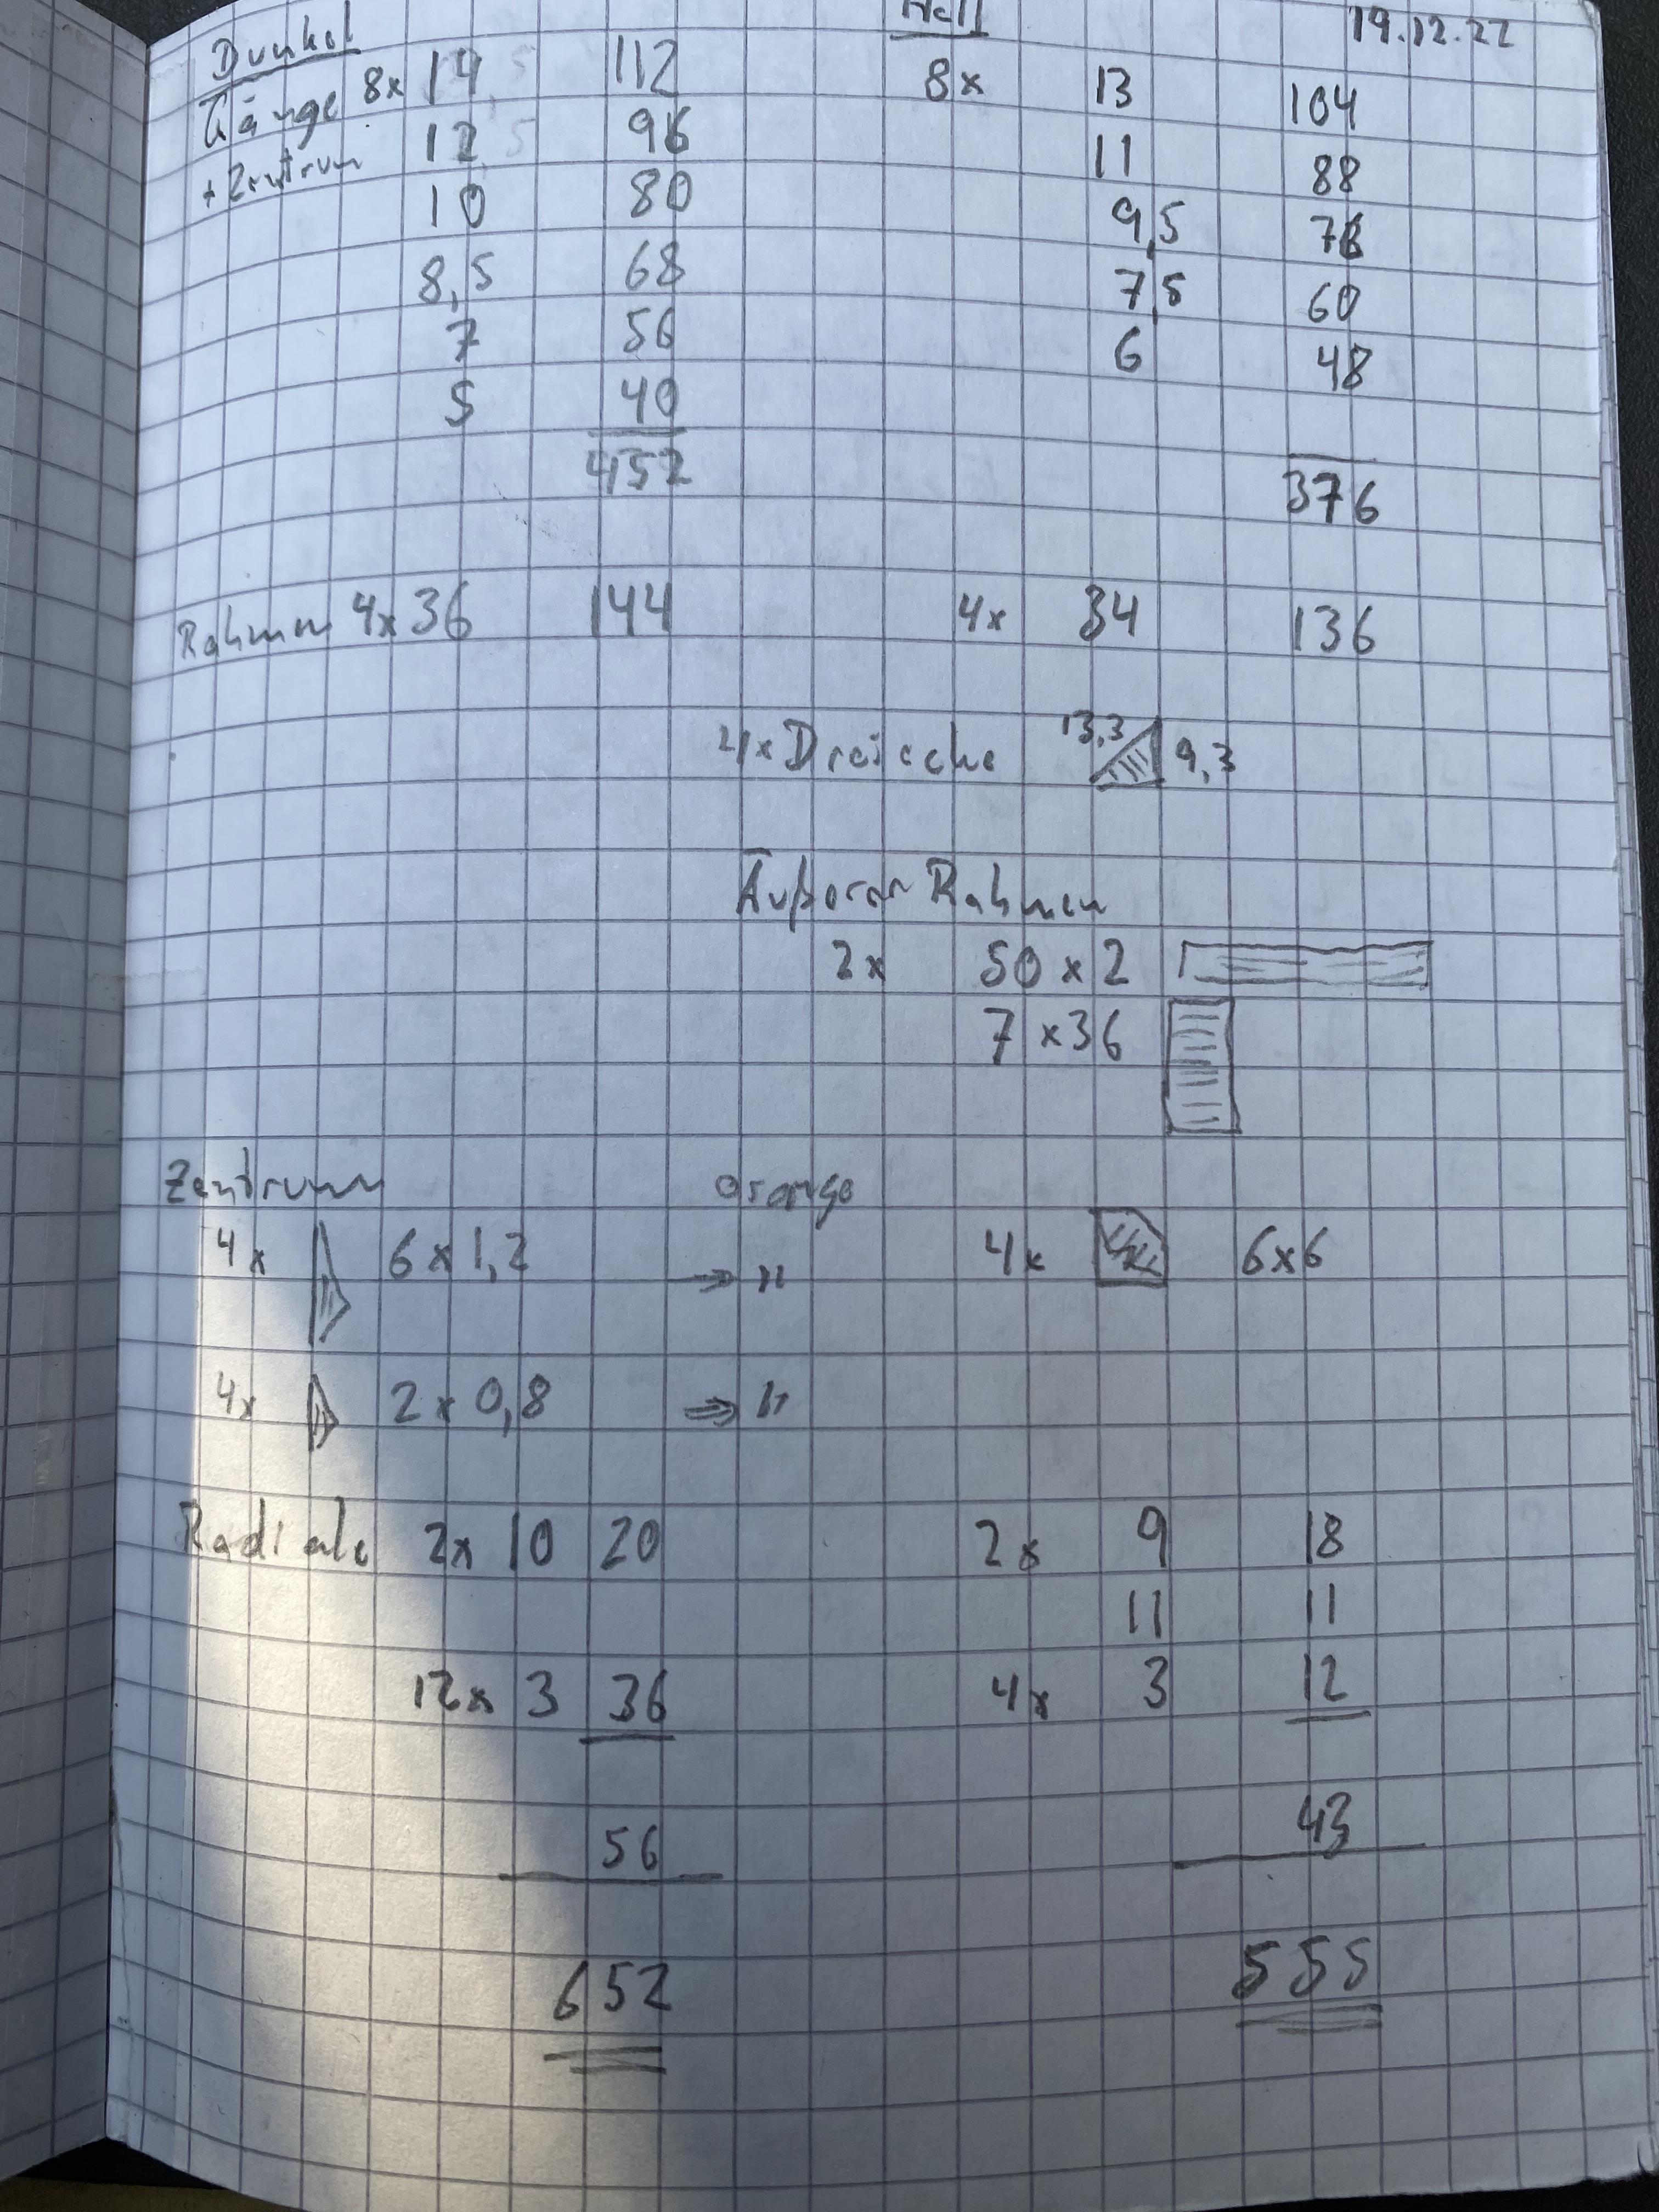 Dunkel Hell 19.12.22
Länge 8x 14 112 8x 13 104
+ Zentrum 12 96 11 88
10 80 9,5 76
8,5 68 7,5 60
7 56 6 48
5 40
452 376
Rahmen 4x 36 144 4x 34 136
4x Dreiecke 13,3 9,3
Äußerer Rahmen
2x 50 x 2
7 x 36
Zentrum orange
4x 6 x 1,2 → " 4x 6x6
4x 2 x 0,8 ⇒ "
Radiale 2x 10 20 2x 9 18
11 11
12x 3 36 4x 3 12
56 43
652 555